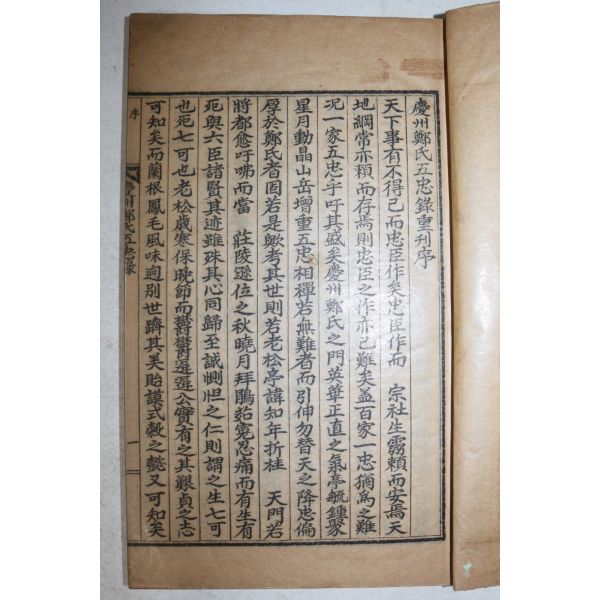 慶州鄭氏五忠錄重刋序
天下事有不得已而忠臣作矣忠臣作而 宗社生霛賴而安焉天
地綱常亦賴而存焉則忠臣之作亦已難矣盖百家一忠猶爲之難
况一家五忠乎吁其盛矣慶州鄭氏之門英華正直之氣亭毓鍾聚
星月動晶山岳增重五忠相禪若無難者而引伸勿替天之降忠偏
厚於鄭氏者固若是歟考其世則若老松亭諱知年折桂 天門若
將都兪吁咈而當 莊陵遜位之秋曉月拜鵑茹寃忍痛而有生有
死與六臣諸賢其迹雖殊其心同歸至誠惻怛之仁則謂之生七可
也死七可也老松歲寒保晩節而欝欝遲遲公實有之其艱貞之志
可知矣而蘭根鳳毛風味逈别世躋其美貽謨式糓之懿又可知矣
序
慶州鄭氏五忠錄
一